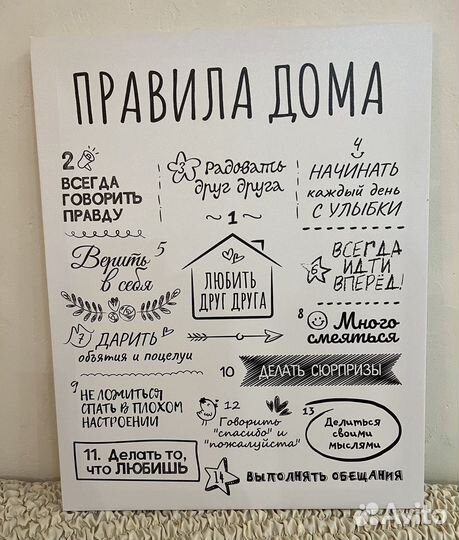 ПРАВИЛА ДОМА
2
ВСЕГДА
ГОВОРИТЬ
ПРАВДУ
3
Радовать
друг друга
4
НАЧИНАТЬ
каждый день
С УЛЫБКИ
~1~
ЛЮБИТЬ
ДРУГ ДРУГА
5
Верить
в себя
6
ВСЕГДА
ИДТИ
ВПЕРЁД!
7 ДАРИТЬ
объятия и поцелуи
8
Много
смеяться
9
НЕ ЛОЖИТЬСЯ
СПАТЬ В ПЛОХОМ
НАСТРОЕНИИ
10 ДЕЛАТЬ СЮРПРИЗЫ
11. Делать то,
что ЛЮБИШЬ
12
Говорить
"спасибо" и
"пожалуйста"
13
Делиться
своими
мыслями
14 ВЫПОЛНЯТЬ ОБЕЩАНИЯ
Avito